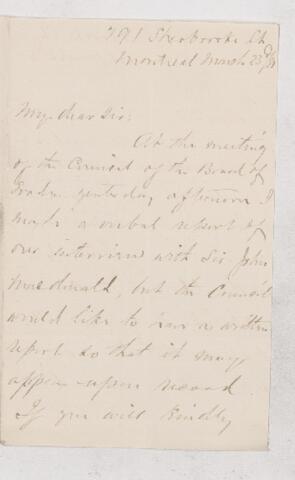 791 Sherbrooke St.
Montreal March 23
My dear Sir:
At the meeting
of the Council of the Board of
Trade yesterday afternoon I
made a verbal report of
our interview with Sir John
Macdonald, but the Council
would like to have a written
report so that it may
appear upon record.
If you will kindly